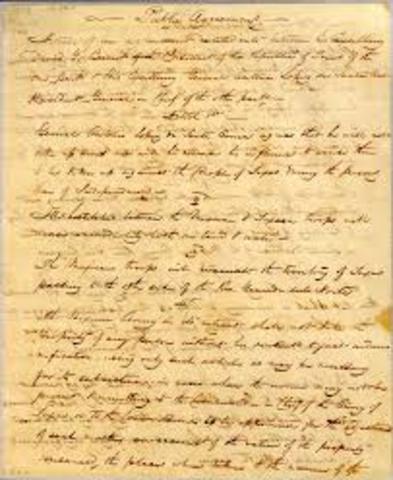 Public Agreement
Articles of an agreement entered into between his Excellency
David G. Burnet President of the Republic of Texas of the
one part & His Excellency General Antonio Lopez de Santa Anna
President General in Chief of the other part
Article 1st
General Antonio Lopez de Santa Anna agrees that he will not
take up arms nor will he exercise his influence to cause them
to be taken up against the People of Texas during the present
War of Independence
2
Hostilities between the Mexican & Texian troops will
cease immediately both on land & water
3
The Mexican troops will evacuate the territory of Texas
passing to the other side of the Rio Grande del Norte
4th
The Mexican Army in its retreat shall not take the
property of any person without his consent & just indem
nification using only such articles as may be necessary
for its subsistence, in cases where the owner may not be
present & remitting to the Commander in Chief of the Army of
Texas or to the
of such matters an account of the value of the property
consumed, the place where taken & the name of the